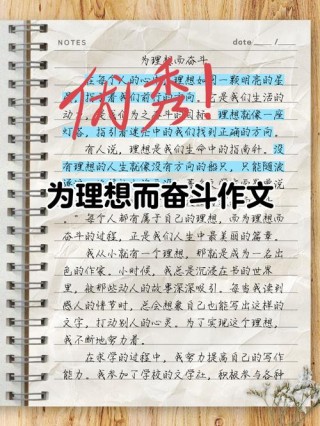 NOTES
date
为理想而奋斗
在每个人的心中,理想如同一颗明亮的星
星,指引着我们前行的方向。它是我们生活的动
力,是我们为之奋斗的目标。理想就像一座
灯塔,指引着迷茫中的我们找到正确的方向。
有人说,理想是我们生命中的指南针,没
有理想的人生就像没有方向的船只,只能随波
优秀!
为理想而奋斗作文
。"每个人都有属于自己的理想,而为理想而奋
斗的过程,正是我们人生中最美丽的篇章。
我从小就有一个理想,那就是成为一名出
色的作家。小时候,我总是沉浸在书的世界
里,被那些动人的故事深深吸引。每当我读到
感人的情节时,总会想象自己也能写出这样的
文字,打动别人的心灵。为了实现这个理想,
我不断地努力着。
在求学的过程中,我努力提高自己的写作
能力。我参加了学校的文学社,积极参与各种